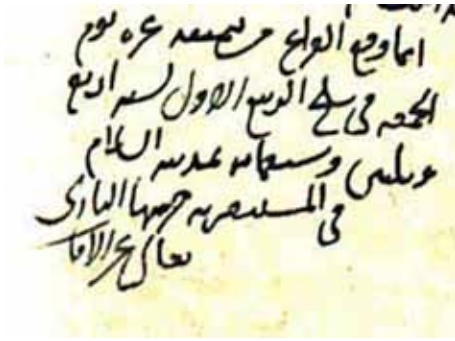 انما وقع الفراغ من تنميقه غرة يوم
الجمعة في سلخ الربيع الاول لسنة اربع
وثلثين وسبعمائة بمدينة السلام
في المستنصرية حرسها الباري
تعالى عن الآفات